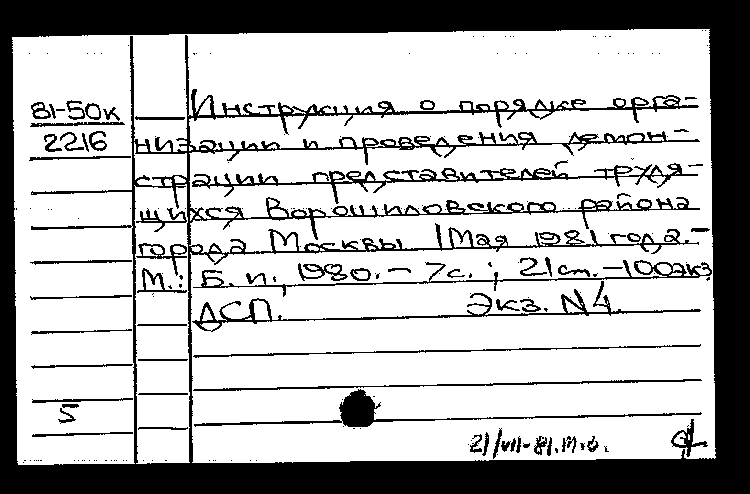 81-50к
2216
Инструкция о порядке орга=
низации и проведения демон-
страции представителей трудя-
щихся Ворошиловского района
города Москвы 1 Мая 1981 года.-
М.: Б. и., 1980. - 7с. ; 21 см. - 100 экз
ДСП. Экз. N4.
5
21/VII-81.